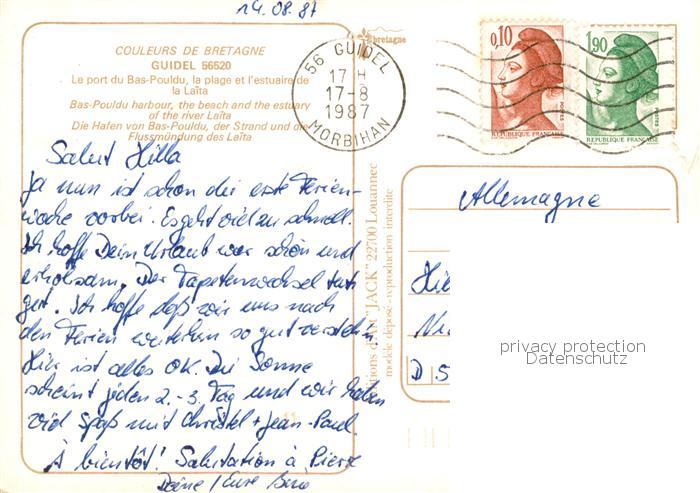 14.08.87
COULEURS DE BRETAGNE
GUIDEL 56520
Le port du Bas-Pouldu, la plage et l'estuaire de
la Laïta
Bas-Pouldu harbour, the beach and the estuary
of the river Laïta
Die Hafen von Bas-Pouldu, der Strand und die
Flussmündung des Laïta
Bretagne
56 GUIDEL
17 H
17-8
1987
MORBIHAN
0,10
POSTES
REPUBLIQUE FRANÇAISE
1,90
REPUBLIQUE FRANÇAISE
Salut Hilla
Ja nun ist schon die erste Ferien-
woche vorbei. Es geht viel zu schnell.
Ich hoffe Dein Urlaub war schön und
erholsam. Der Tapetenwechsel
gut. Ich hoffe daß wir uns nach
den Ferien weiterhin so gut verstehn
Hier ist alles OK. Die Sonne
scheint jeden 2.-3. Tag und wir haben
viel Spaß mit Christel + Jean-Paul.
À bientôt! Salutation à Pierre
Deine / Eure
"JACK" 22700 Louannec
modèle déposé - reproduction interdite
Allemagne
D 5
privacy protection
Datenschutz